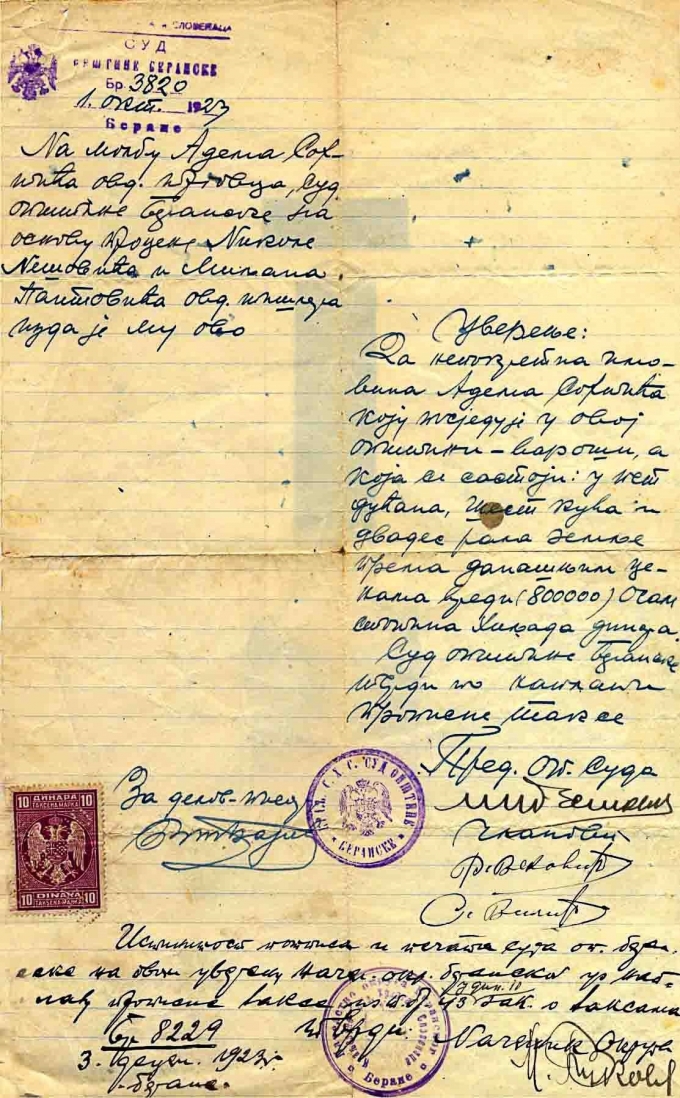 СУД
ОПШТИНЕ БЕРАНСКЕ
Бр. 3820
1. окт. 1923
Беране
На молбу Адема Сох-
ића овд. трговца, Суд
општине беранске на
основу процене Николе
Нешовића и Милана
Пантовића овд.
издаје му ово
Уверење:
Да непокретна имо-
вина Адема
коју поседује у овој
општини-вароши, а
која се састоји: у пет
дућана, шест кућа и
двадес рала земље
према данашњим це-
нама вреди (800000) Осам
стотина хиљада динара.
Суд општине беранске
тврди по наплати
прописне таксе
Пред. оп. Суда
За делов.
КРАЉ. С.Х.С. СУД ОПШТИНЕ
БЕРАНСКЕ
10 ДИНАРА 10
ТАКСЕНА МАРКА
10 DINARA 10
TAKSENA MARKA
Истинитост потписа и печата суда оп. беран-
ске на овом уверењу нач. окр. беранског уз нап-
лату прописне таксе из Т.бр. зак. о таксама
Бр 8229 тврди. Начелник Округа
3. 1923 г.
Беране.
Беране